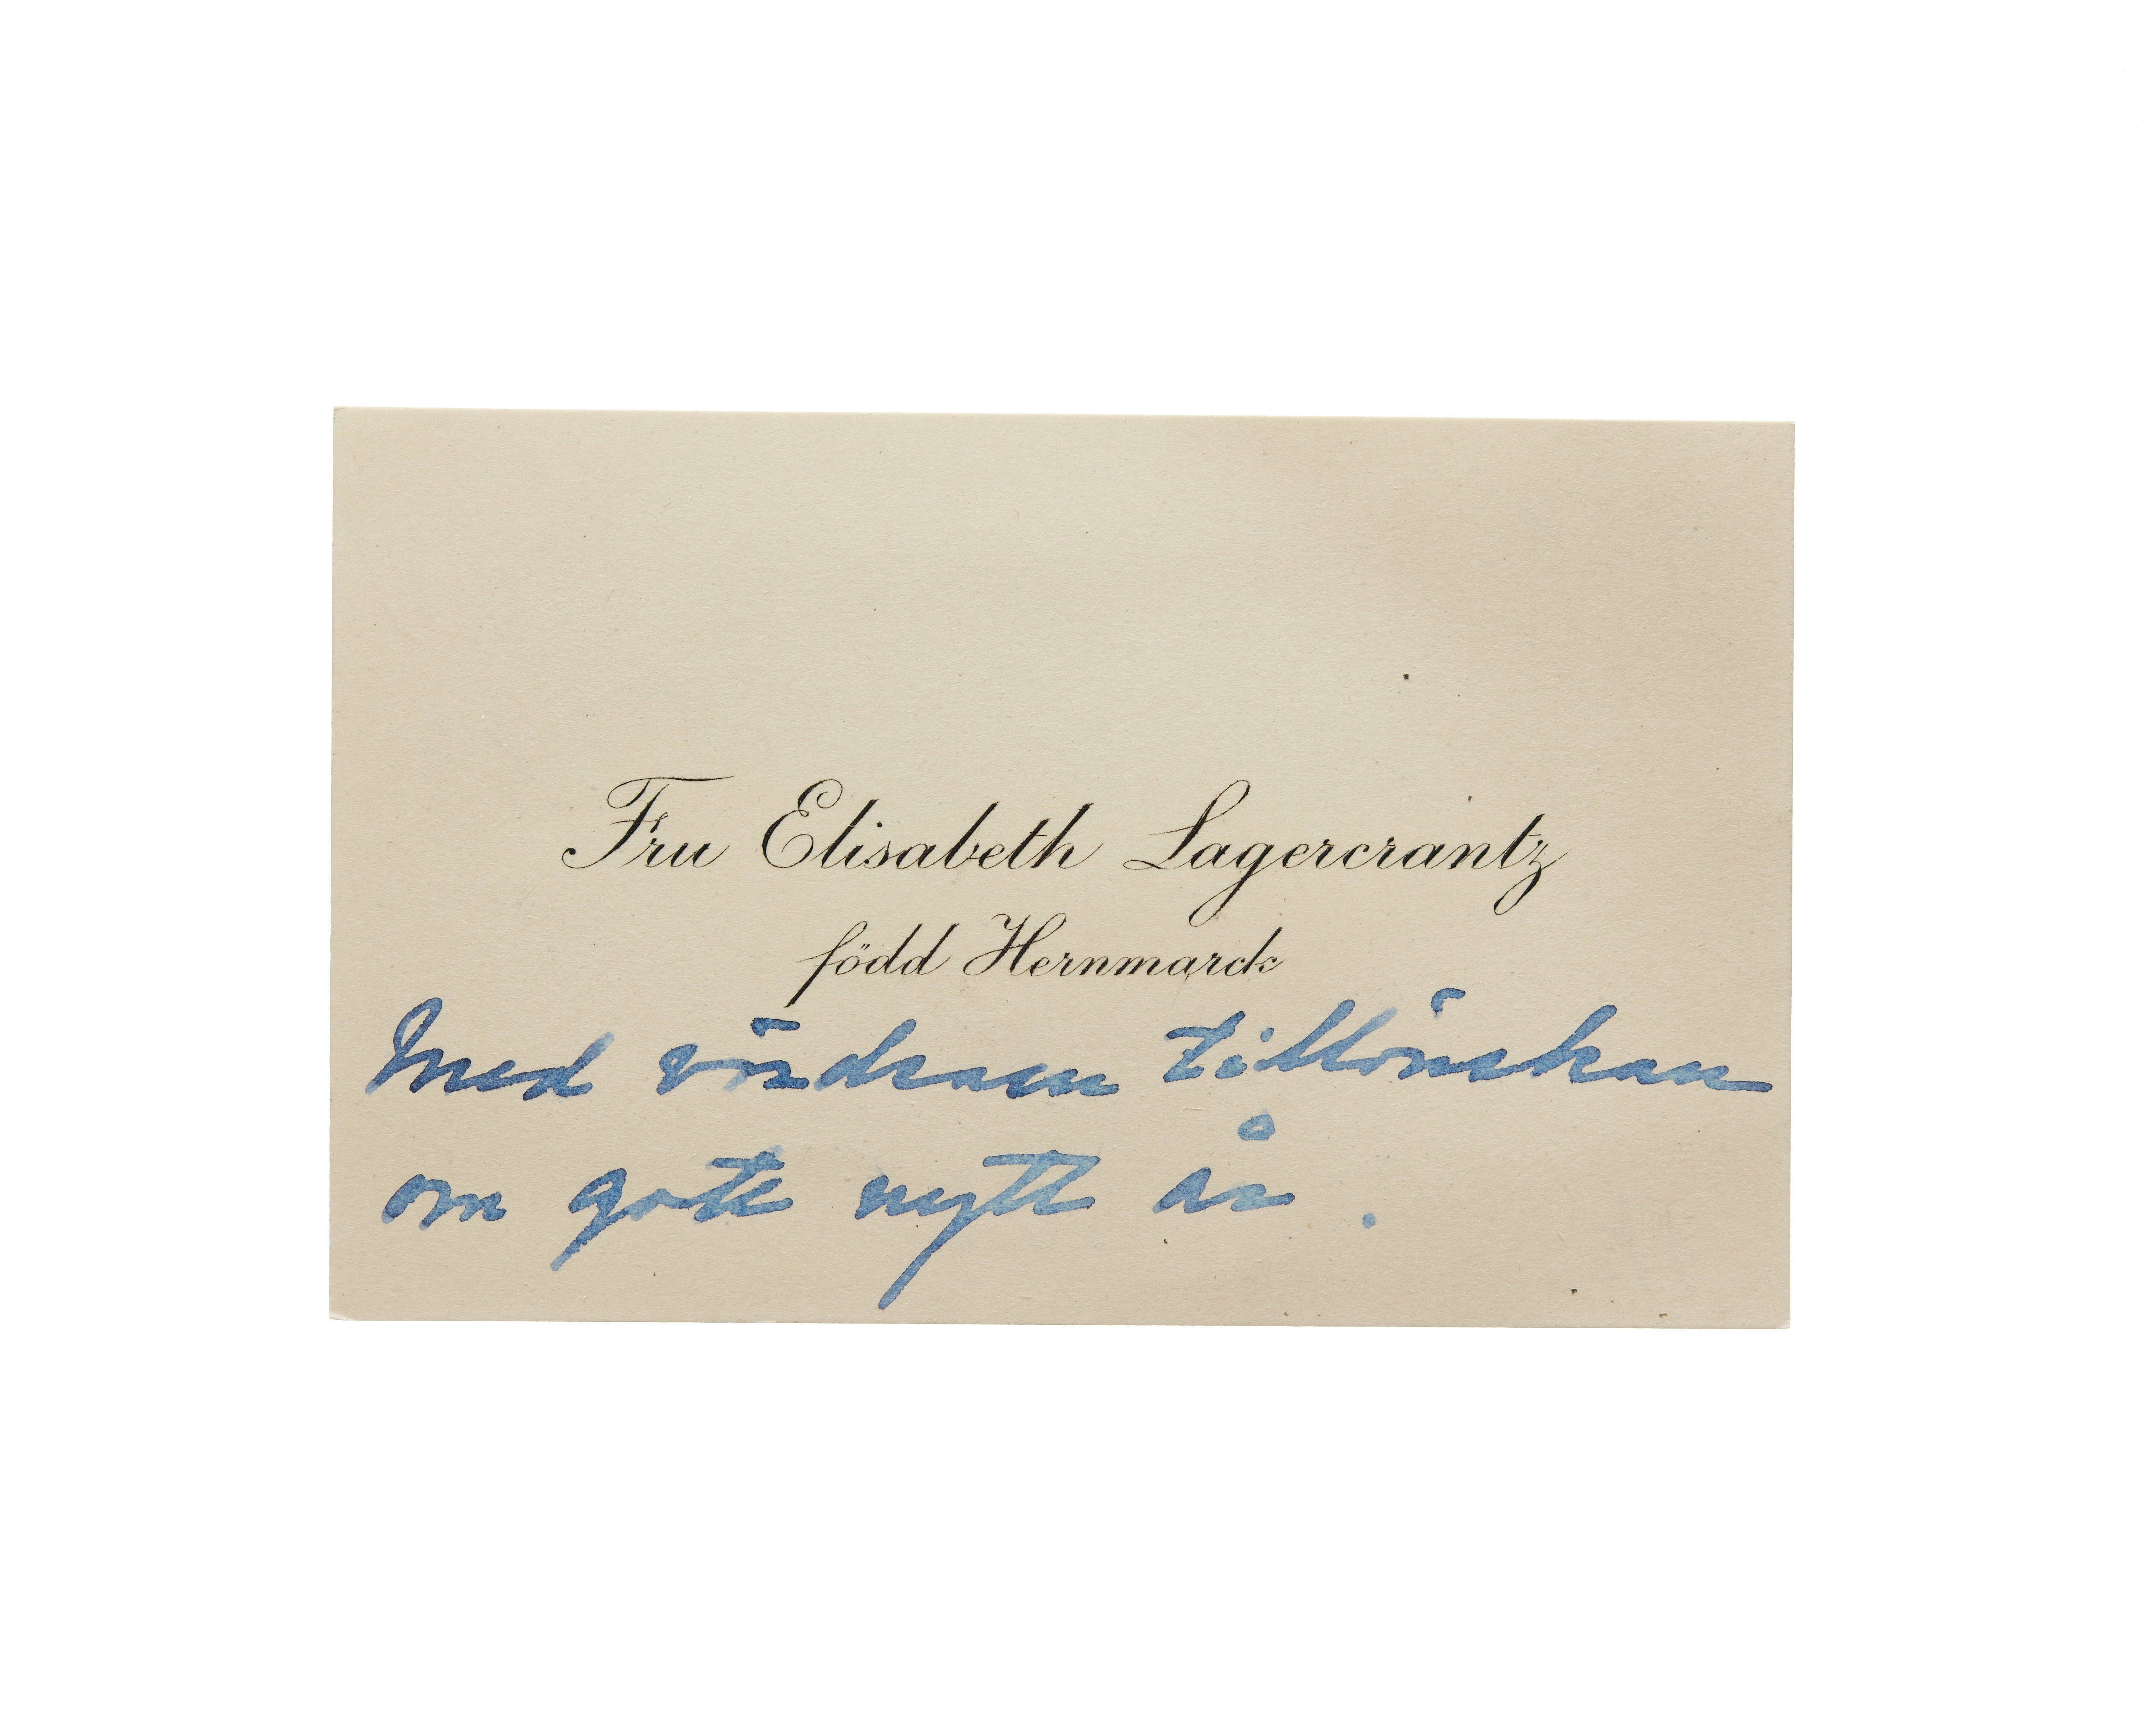 Fru Elisabeth Lagercrantz
född Hernmarck
Med vördsam tillönskan
om gott nytt år.